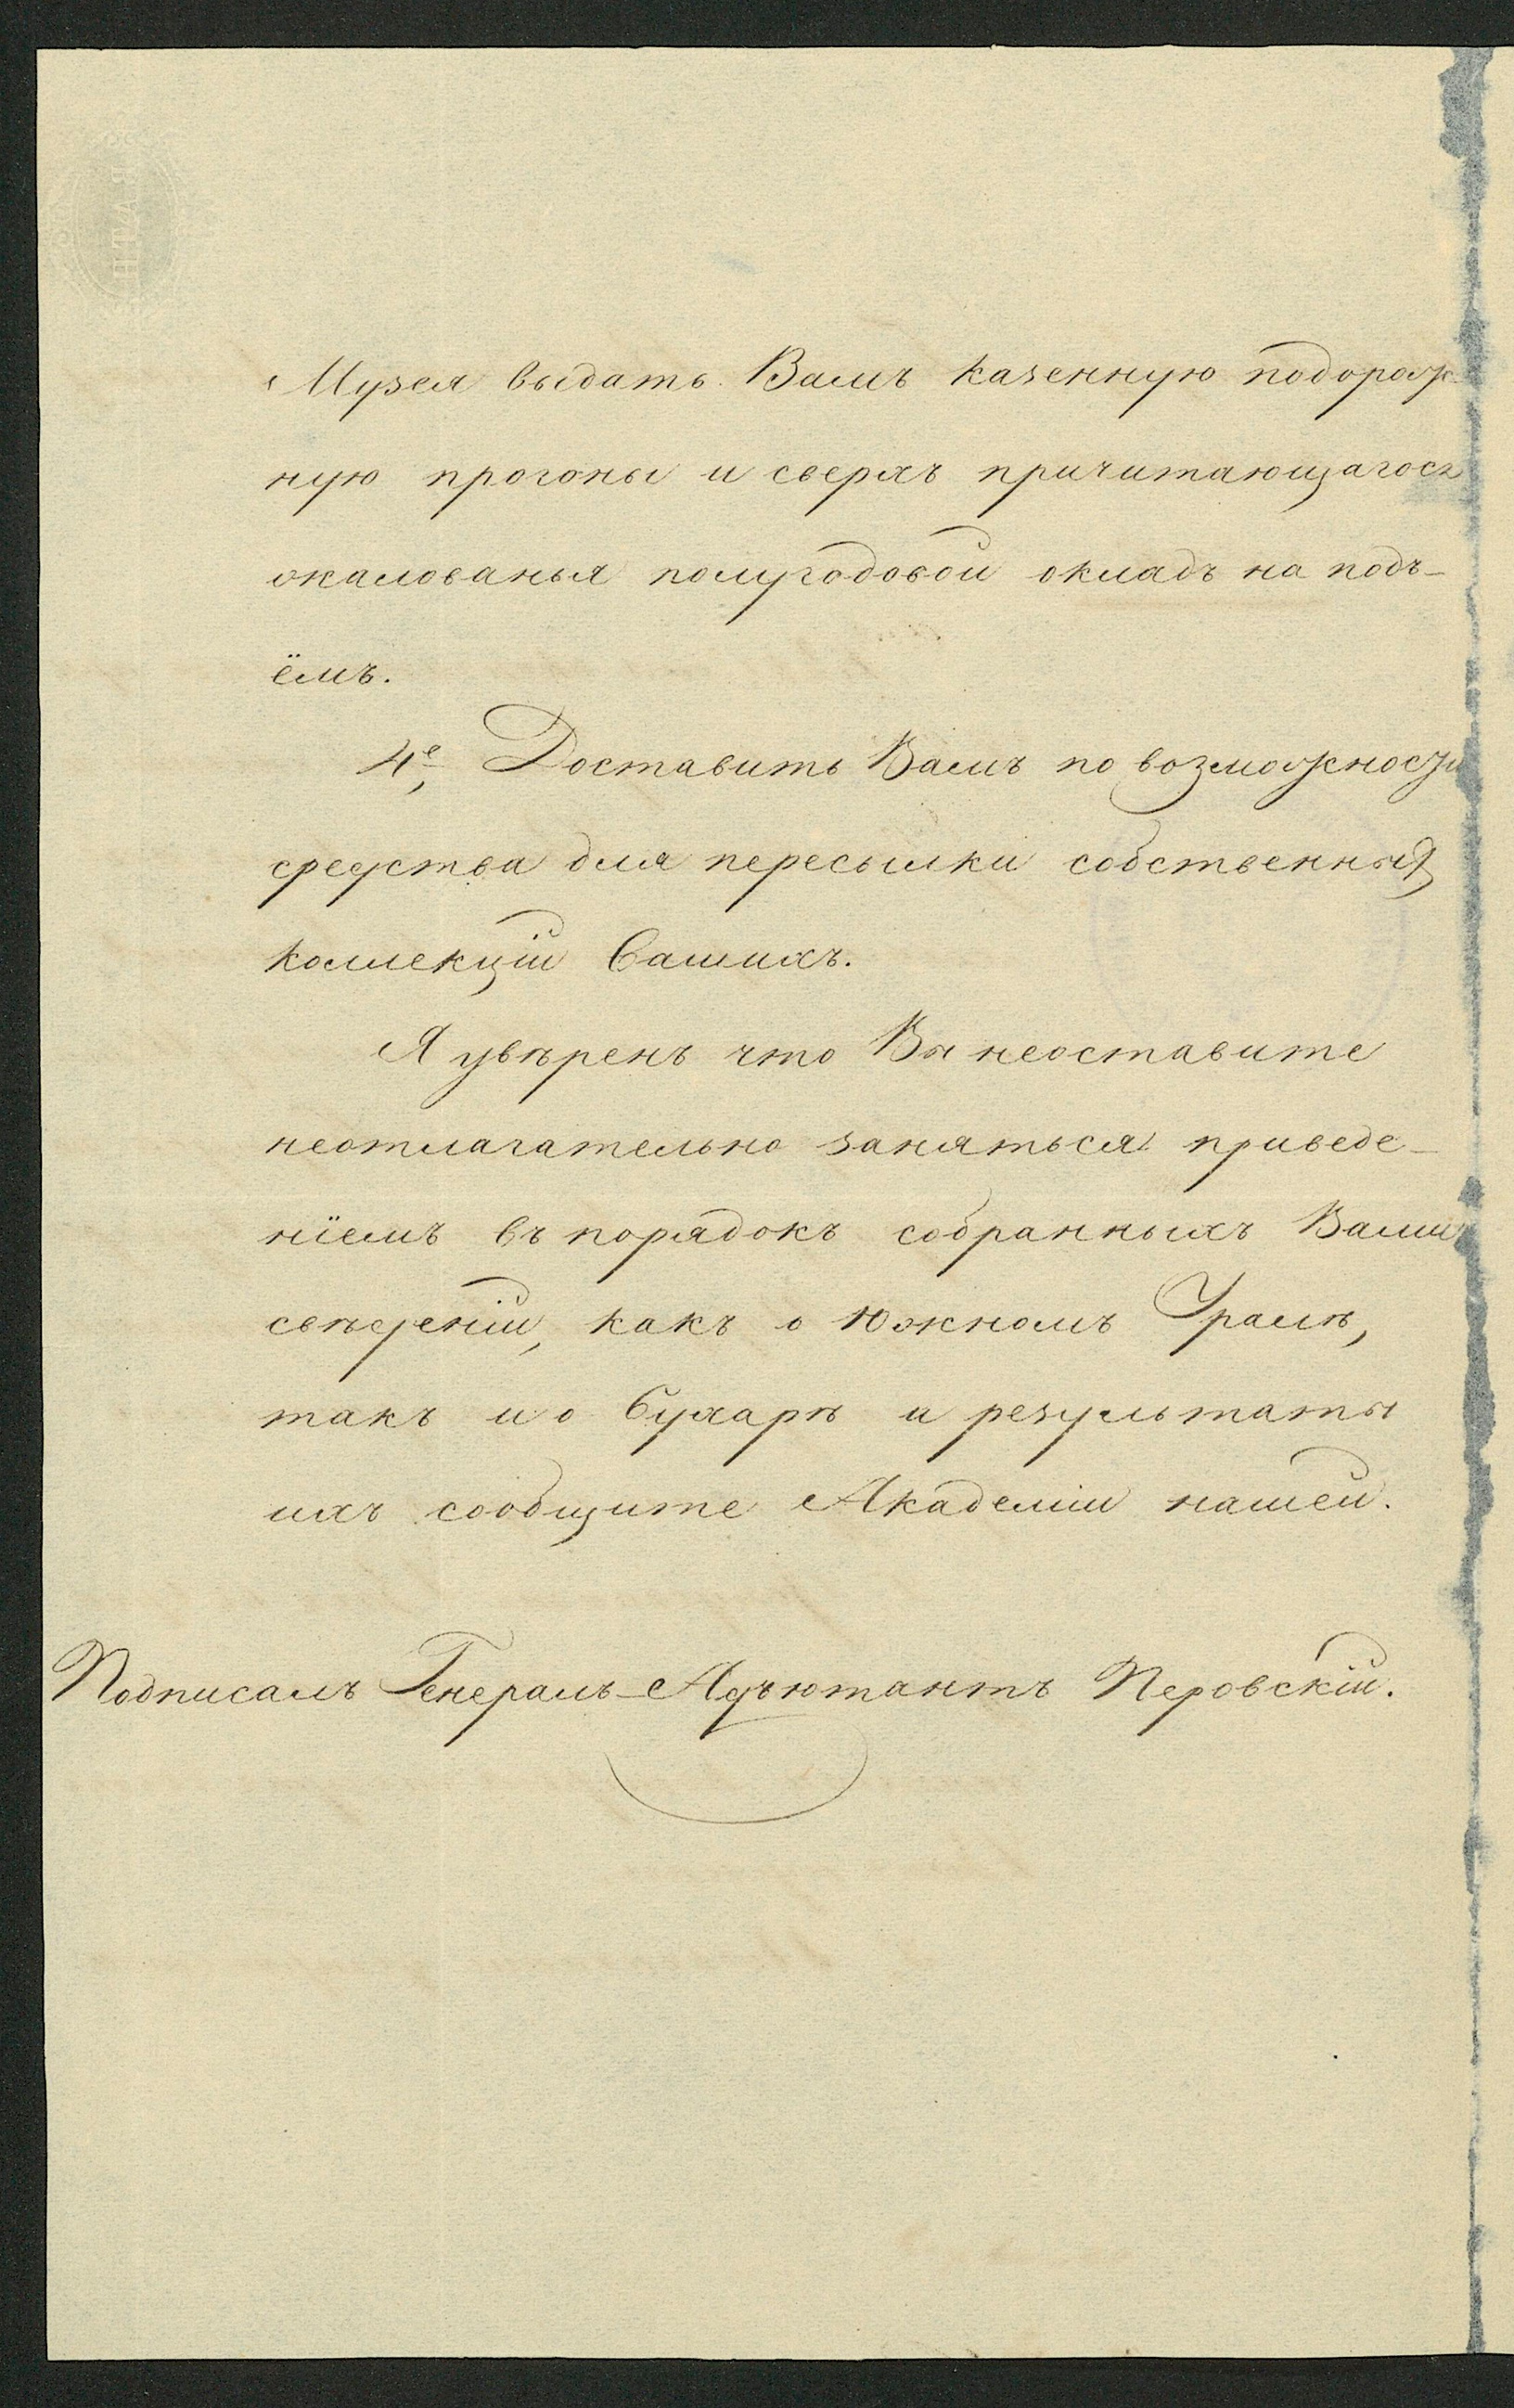 Музея выдать Вамъ казенную подорож-
ную прогоны и сверхъ причитающагося
жалованья полугодовой окладъ на подъ-
ёмъ.
4е, Доставить Вамъ по возможности
средства для пересылки собственных
коллекцій Вашихъ.
Я увѣренъ что Вы неоставите
неотлагательно заняться приведе-
ніемъ въ порядокъ собранныхъ Вами
свѣденій, какъ о Южномъ Уралѣ,
такъ и о Бухарѣ и результаты
ихъ сообщите Академіи нашей.
Подписалъ Генералъ-Адъютантъ Перовскій.